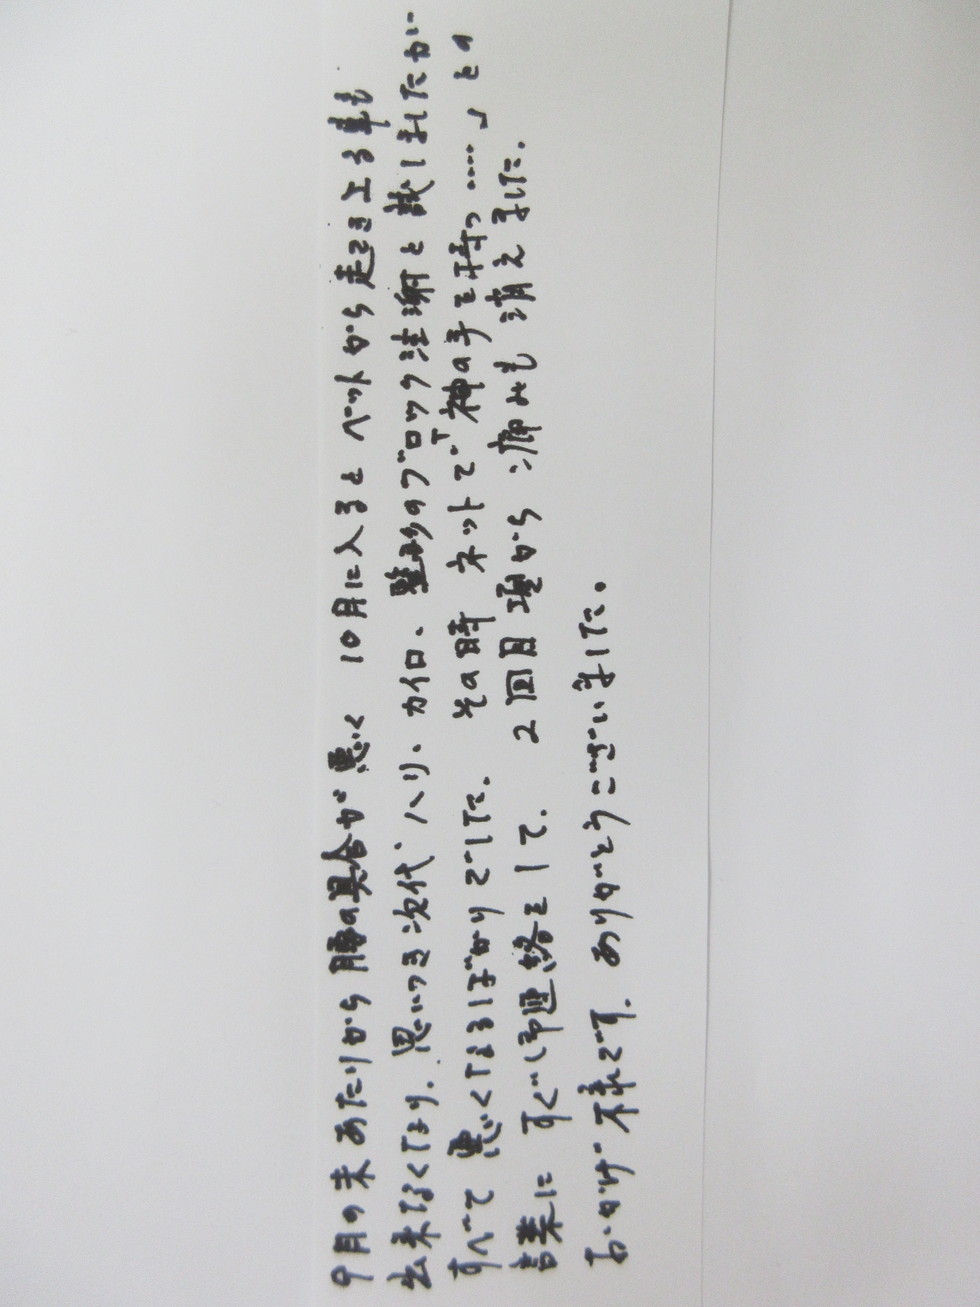 9月の末あたりから腰の具合が悪く 10月に入ると ベットから起き上る事も
出来なくなり、思いつき次代、ハリ、カイロ、整形のブロック注謝と試しましたが
すべて 悪くなるばかりでした。 その時 ネットで「神の手を持つ……」との
言葉に すぐ 連絡をして、 2回目頃から 痛みも 消えました。
おかげ様です。ありがとうございました。